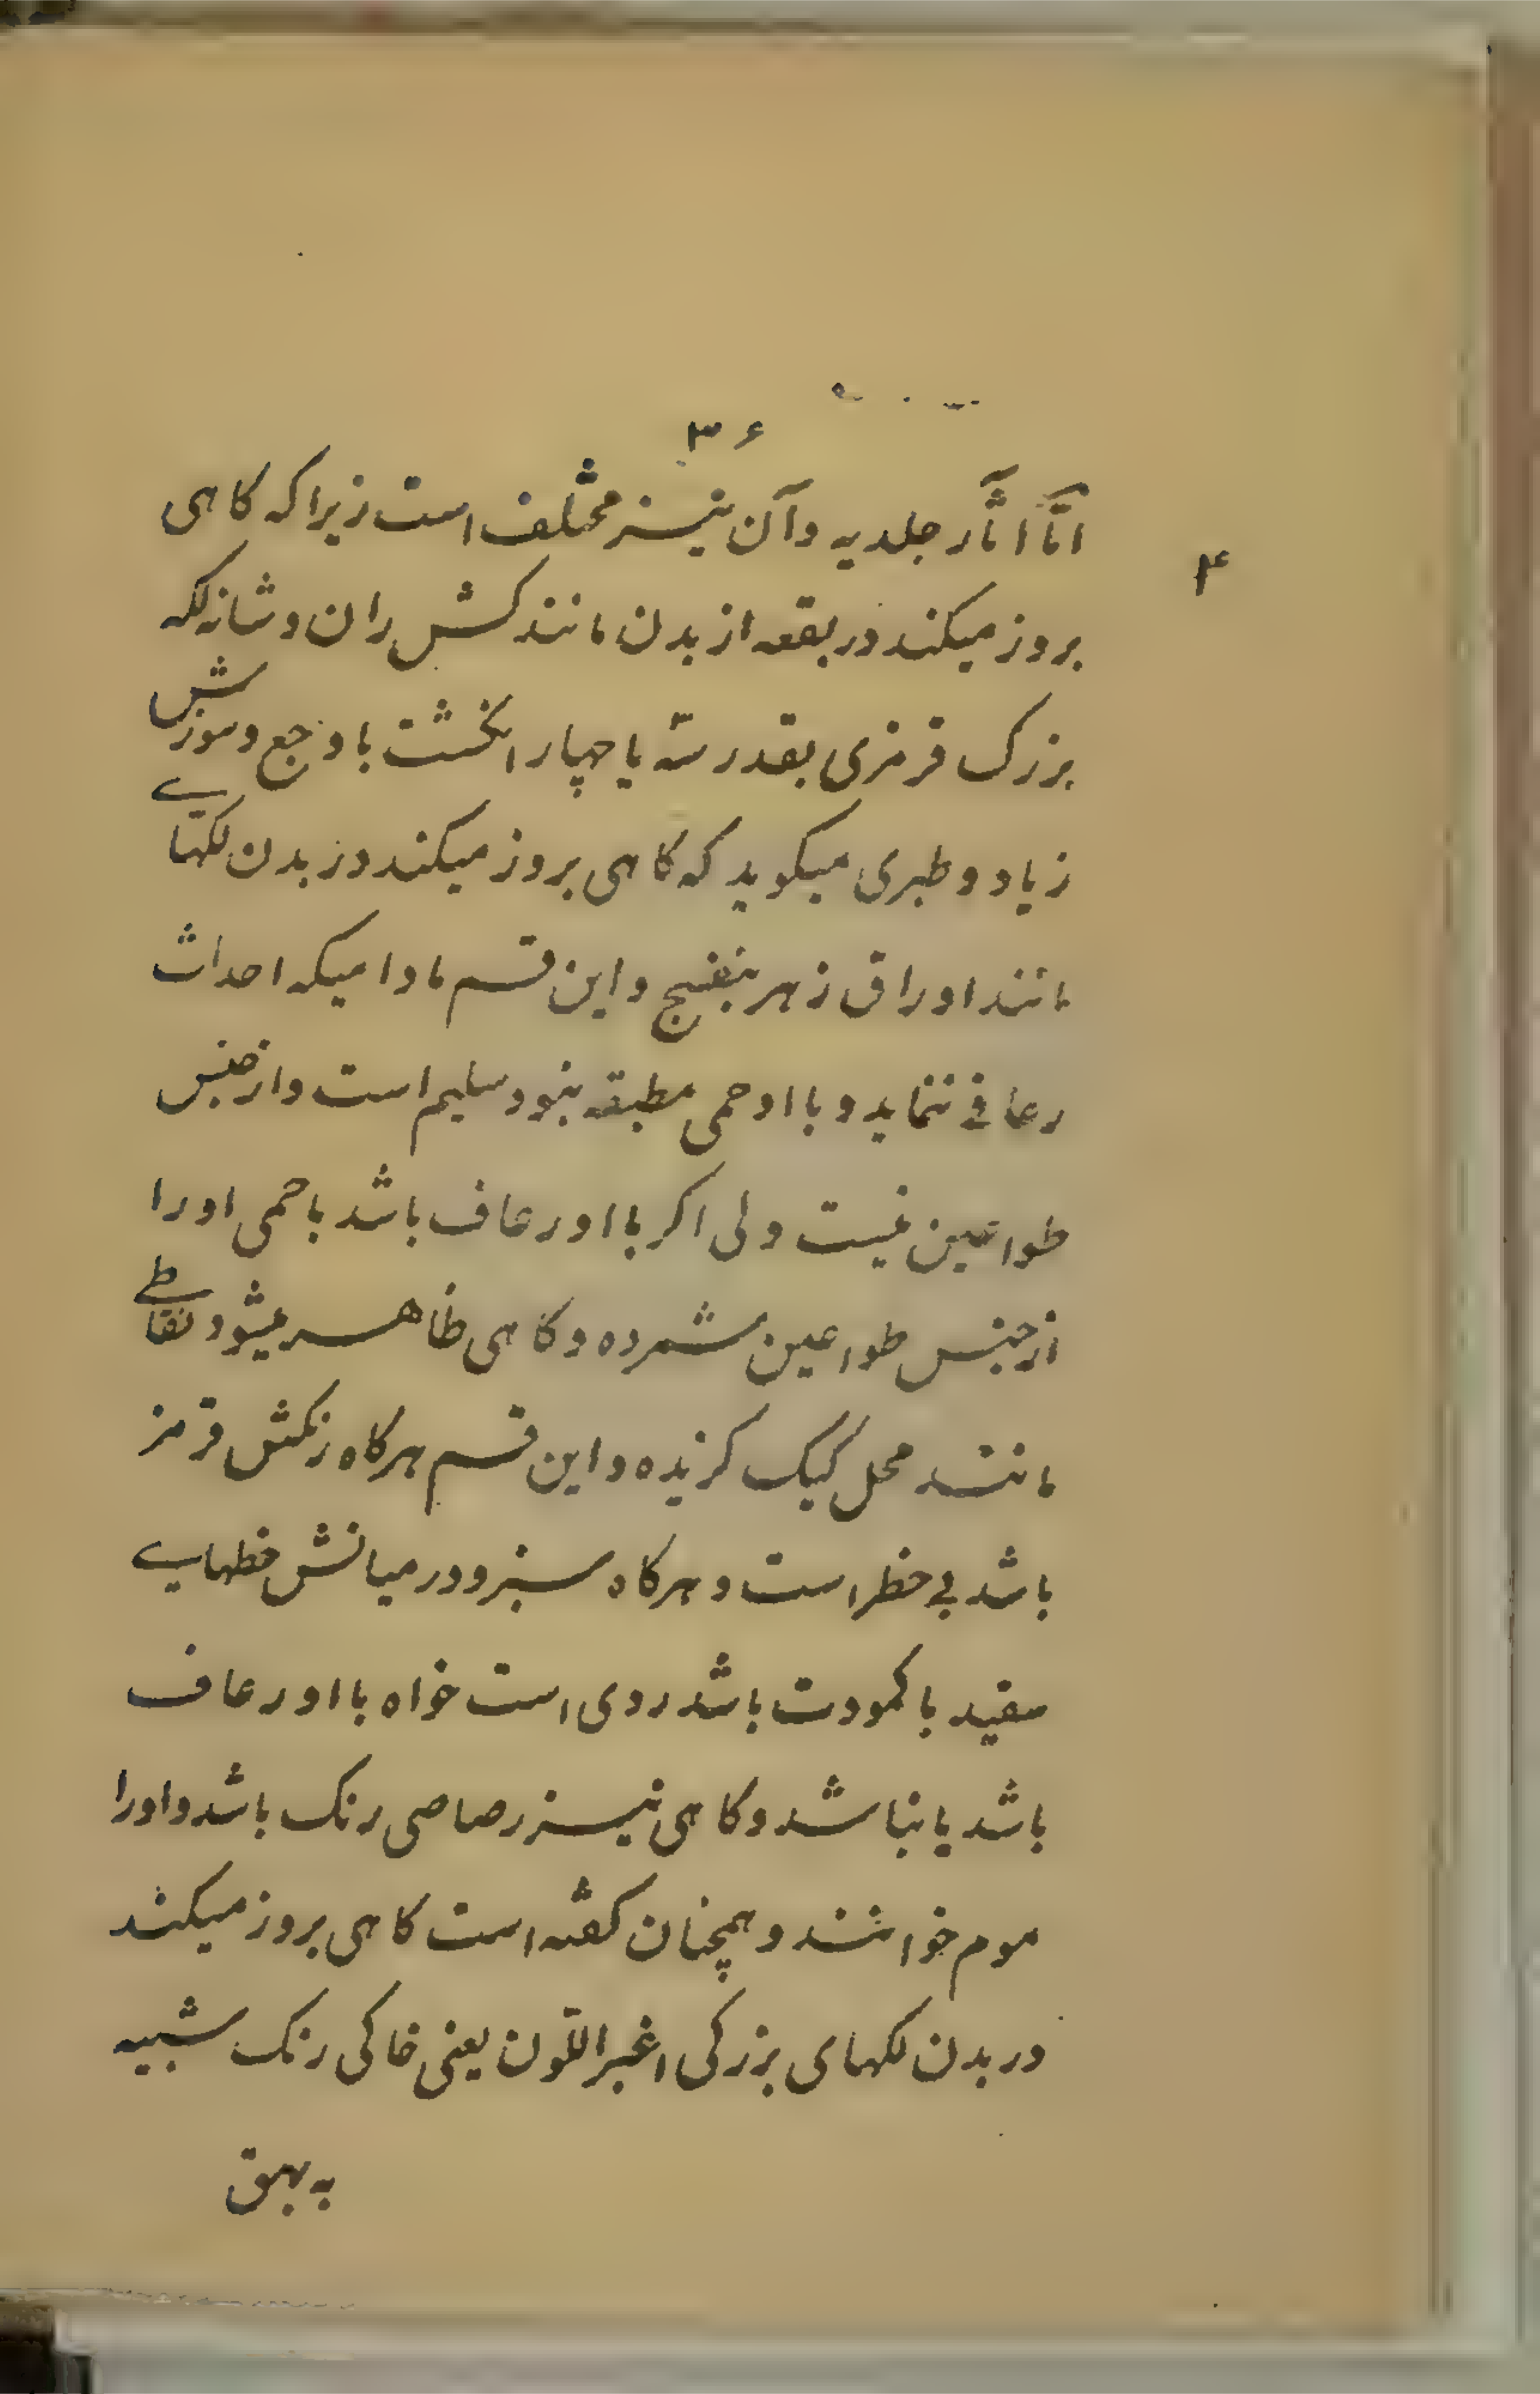 ۳۶
امّا آثار جلدیه و آن نیز مختلف است زیرا که کاهی
۴
بروز میکند در بقعه از بدن مانند کش ران و شانه لکه
بزرک قرمزی بقدر سّه یا چهار انکشت با وجع و سوزش
زیاد و طبری میکوید که کاهی بروز میکند در بدن لکهایے
مانند اوراق زهر بنفنج و این قسم مادامیکه احداث
رعافے ننماید و با او حمی مطبقه نبود سلیم است و از جنس
طواعین نیست ولی اکر با او رعاف باشد با حمی او را
از جنس طواعین شمرده و کاهی ظاهر میشود نقاطے
مانند محل کیک کزیده و این قسم هرکاه رنکش قرمز
باشد بے خطر است و هرکاه سبز و در میانش خطهایے
سفید با کمودت باشد ردی است خواه با او رعاف
باشد یا نباشد و کاهی نیز رصاصی رنک باشد و او را
موم خوانند و همچنان کفته است کاهی بروز میکند
در بدن لکهای بزرکی اغبر اللّون یعنی خاکی رنک شبیه
به بهق